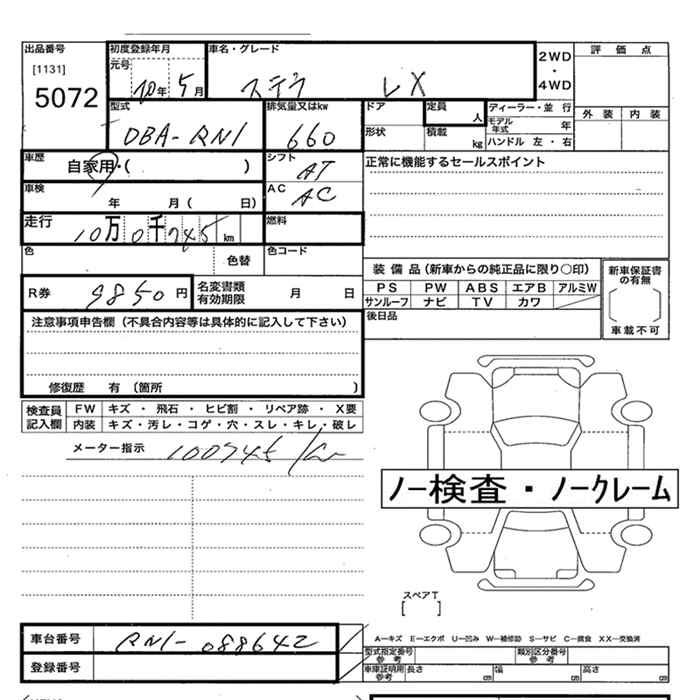 出品番号 初度登録年月 車名・グレード 2WD ・ 4WD 評価点
[1131] 元号 20年 5月 ステラ LX
5072
型式 排気量又はkw ドア 定員 人 ディーラー・並行 外装 内装
DBA-RN1 660 形状 積載 kg モデル年式 年
ハンドル 左・右
車歴 自家用・( ) シフト AT 正常に機能するセールスポイント
車検 年 月( 日) AC AC
走行 10万0千745km 燃料
色 色替 色コード
装備品(新車からの純正品に限り○印) 新車保証書の有無
R券 9850円 名変書類有効期限 月 日 PS PW ABS エアB アルミW
サンルーフ ナビ TV カワ
注意事項申告欄(不具合内容等は具体的に記入して下さい) 後日品 車載不可
修復歴 有(箇所 )
検査員記入欄 FW キズ・飛石・ヒビ割・リペア跡・X要
内装 キズ・汚レ・コゲ・穴・スレ・キレ・破レ
メーター指示 100745
ノー検査・ノークレーム
スペアT
[ ]
車台番号 RN1-088642 A―キズ E―エクボ U―凹み W―補修跡 S―サビ C―腐食 XX―交換済
型式指定番号 参考 類別区分番号 参考
登録番号 車庫証明 参考 長さ cm 幅 cm 高さ cm